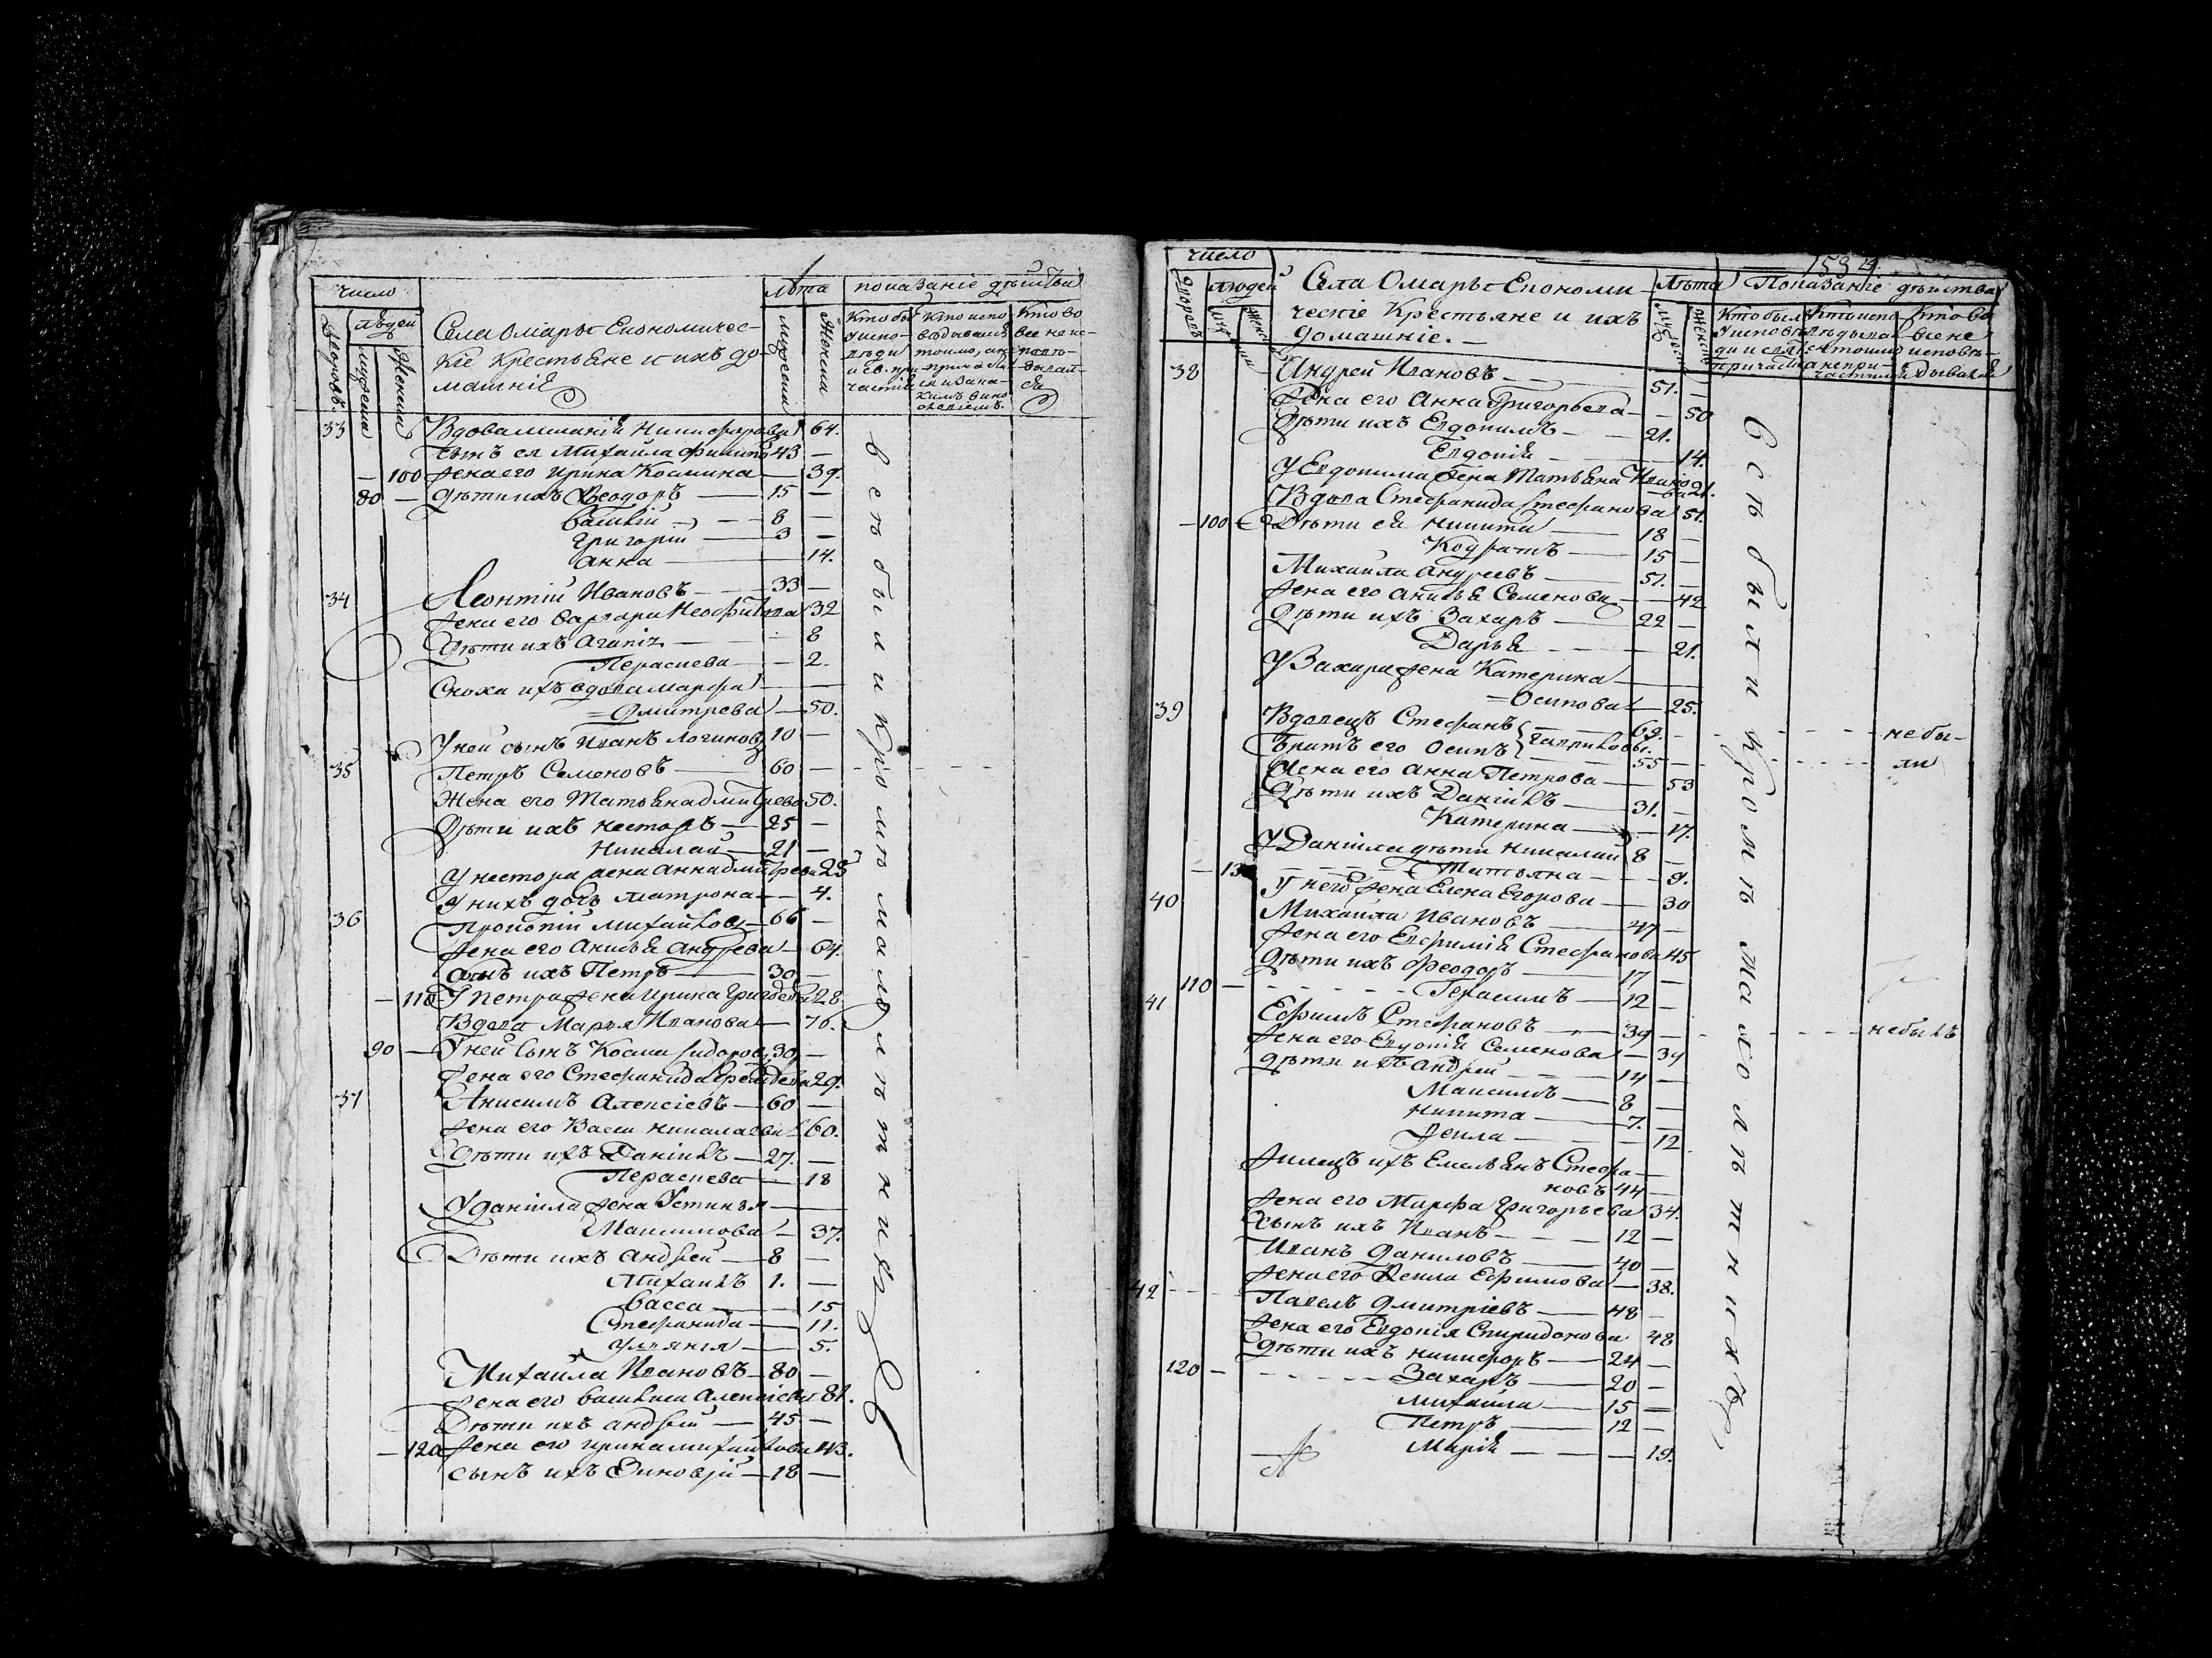 число
людей
Дворовъ.
Мужеска
Женска
Села Омары Економичес-
кие Крестьяне и ихъ до-
машніе
Лѣта
Мужеска
Женска
показание дѣйства
Кто бы
у испо-
вѣди
и св. при-
частія
Кто испо
вѣдывался
токмо, а не
причастился
Кто во
все не ис-
повѣ-
дывал-
ся
33 Вдова Никифорова 64.
сынъ ея Михайла 43 —
— 100 жена его Ирина Космина — 39.
80 — дѣти ихъ Ѳеодоръ — 15 —
Василій — 8 —
Григорій — 3 —
Анна — 14.
34 Леонтій Ивановъ — 33 —
жена его Варвара Неофитова 32
Дѣти ихъ — 8
Параскева — 2.
Сноха ихъ вдова Марѳа —
= Дмитрева — 50.
У ней сынъ Иванъ Логиновъ 10 —
35 Петръ Семеновъ — 60 —
Жена его Татьяна Дмитрева 50.
Дѣти ихъ Несторъ — 25 —
Николай — 21 —
У Нестора жена Анна Дмитрева 25
У нихъ дочь Матрона — 4.
36 Прокопій Михайловъ — 66 —
жена его Анисья Андреева — 64.
Сынъ ихъ Петръ — 30 —
— 110 У Петра жена Ирина Григорьева 28.
Вдова Марья Иванова — 76.
90 — У ней сынъ Косма Сидоровъ 30 —
Жена его Стефанида 29.
37 Анисимъ Алексіевъ — 60 —
жена его Васса Николаева 60.
Дѣти ихъ Даніилъ — 27. —
Параскева — 18
У Даніила жена Устинья —
Максимова — 37.
Дѣти ихъ Андрей — 8 —
Михаилъ 1. —
Васса — 15
Стефанида — 11.
Ульянія — 5.
Михайла Ивановъ — 80 —
жена его Василиса Алексіева 81.
Дѣти ихъ Андрей — 45 —
— 120 жена его Ирина Михайлова 43.
сынъ ихъ Зиновій — 18 —
всѣ были кромѣ малолѣтнихъ
1534.
число
людей
Дворовъ
Села Омары Економи-
ческіе Крестьяне и ихъ
домашніе. —
Лѣта
Показаніе дѣйства
Кто был
у исповѣ
ди и свя.
причастія
Кто испо
вѣдыва
ся токмо
а не при-
частился
Кто во
все не
исповѣ-
дывался
38 Андрей Ивановъ — 51. —
Жена его Анна Григорьева — 50
Дѣти ихъ Евдокимъ — 21.
Евдокія — 14.
У Евдокима жена Татьяна Ивано-
ва 21.
Вдова Стефанида Стефанова 51.
— 100 Дѣти ея Никита — 18 —
Кодратъ — 15 —
Михайла Андреевъ — 51. —
жена его Анисья Семенова — 42
Дѣти ихъ Захаръ — 22 —
Дарья — 21.
У Захара жена Катерина —
= Осипова — 25.
39 Вдовецъ Стефанъ 69. — не бы-
Братъ его Осипъ Гавриловы. 55 — ли
Жена его Анна Петрова — 53
Дѣти ихъ Даніилъ — 31. —
Катерина — 17.
У Даніила дѣти Николай 8 —
Татьяна — 9.
У него жена Елена Егорова — 30
40 Михайла Ивановъ — 47 —
жена его Евфимія Стефанова 45
Дѣти ихъ Феодоръ — 17 —
110 — Герасимъ — 12 —
41 Ефимъ Стефановъ — 39 — не былъ
жена его Евдокія Семенова — 39
дѣти ихъ Андрей — 14 —
Максимъ — 8 —
Никита — 7. —
Ѳекла — 12
Жилецъ ихъ Емельянъ Стефа-
новъ 44 —
жена его Марфа Григорьева 34.
Сынъ ихъ Иванъ — 12 —
Иванъ Даниловъ — 40 —
жена его Ѳекла Ефимова — 38.
42 Павелъ Дмитріевъ — 48 —
жена его Евдокія Спиридонова 48
Дѣти ихъ Никифоръ — 24 —
120 — Захаръ — 20 —
Михайла — 15 —
Петръ — 12 —
Марія — 19.
всѣ были кромѣ малолѣтнихъ